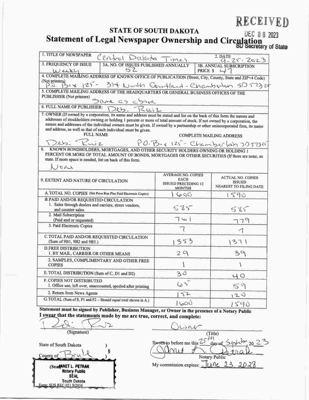 RECEIVED
DEC 08 2023
SD Secretary of State
STATE OF SOUTH DAKOTA
Statement of Legal Newspaper Ownership and Circulation
1. TITLE OF NEWSPAPER
Central Dakota Times
2. DATE
9-25-2023
3. FREQUENCY OF ISSUE
Weekly
3A. NO. OF ISSUES PUBLISHED ANNUALLY
52
3B. ANNUAL SUBSCRIPTION
PRICE $ 47
4. COMPLETE MAILING ADDRESS OF KNOWN OFFICE OF PUBLICATION (Street, City, County, State and ZIP+4 Code)
(Not printers)
P.O. Box 125 - 314 North Courtland - Chamberlain SD 57325
5. COMPLETE MAILING ADDRESS OF THE HEADQUARTERS OR GENERAL BUSINESS OFFICES OF THE
PUBLISHER (Not printer)
Same as above
6. FULL NAME OF PUBLISHER:
Deb. Ruiz
7. OWNER (If owned by a corporation, its name and address must be stated and list on the back of this form the names and
addresses of stockholders owning or holding 1 percent or more of total amount of stock. If not owned by a corporation, the
names and addresses of the individual owners must be given. If owned by a partnership or other unincorporated firm, its name
and address, as well as that of each individual must be given.
FULL NAME
COMPLETE MAILING ADDRESS
Deb. Ruiz
P.O. Box 125 - Chamberlain SD 57325
8. KNOWN BONDHOLDERS, MORTGAGEES, AND OTHER SECURITY HOLDERS OWNING OR HOLDING 1
PERCENT OR MORE OF TOTAL AMOUNT OF BONDS, MORTGAGES OR OTHER SECURITIES (If there are none, so
state. If more space is needed, list on back of this form.
None
9. EXTENT AND NATURE OF CIRCULATION
AVERAGE NO. COPIES
EACH
ISSUED PRECEDING 12
MONTHS
ACTUAL NO. COPIES
ISSUED
NEAREST TO FILING DATE
A. TOTAL NO. COPIES (Net Press Run Plus Paid Electronic Copies)
1600
1590
B. PAID AND/OR REQUESTED CIRCULATION
1. Sales through dealers and carriers, street vendors,
and counter sales.
585
585
2. Mail Subscription
(Paid and or requested)
741
779
3. Paid Electronic Copies
7
7
C. TOTAL PAID AND/OR REQUESTED CIRCULATION
(Sum of 9B1, 9B2 and 9B3.)
1353
1371
D. FREE DISTRIBUTION
1. BY MAIL, CARRIER OR OTHER MEANS
29
39
2. SAMPLES, COMPLIMENTARY AND OTHER FREE
COPIES
1
1
E. TOTAL DISTRIBUTION (Sum of C, D1 and D2)
30
40
F. COPIES NOT DISTRIBUTED
1. Office use, left over, unaccounted, spoiled after printing
65
59
2. Return from News Agents
152
120
G. TOTAL (Sum of E, F1 and F2 - Should equal total shown in A.)
1600
1590
Statement must be signed by Publisher, Business Manager, or Owner in the presence of a Notary Public
I swear that the statements made by me are true, correct, and complete:
Owner
(Signature)
(Title)
State of South Dakota
County of
Sworn to before me this 25th day of Sept 2023
Notary Public
(Seal)
JANET L. PETRAK
Notary Public
SEAL
South Dakota
My commission expires: June 23, 2028